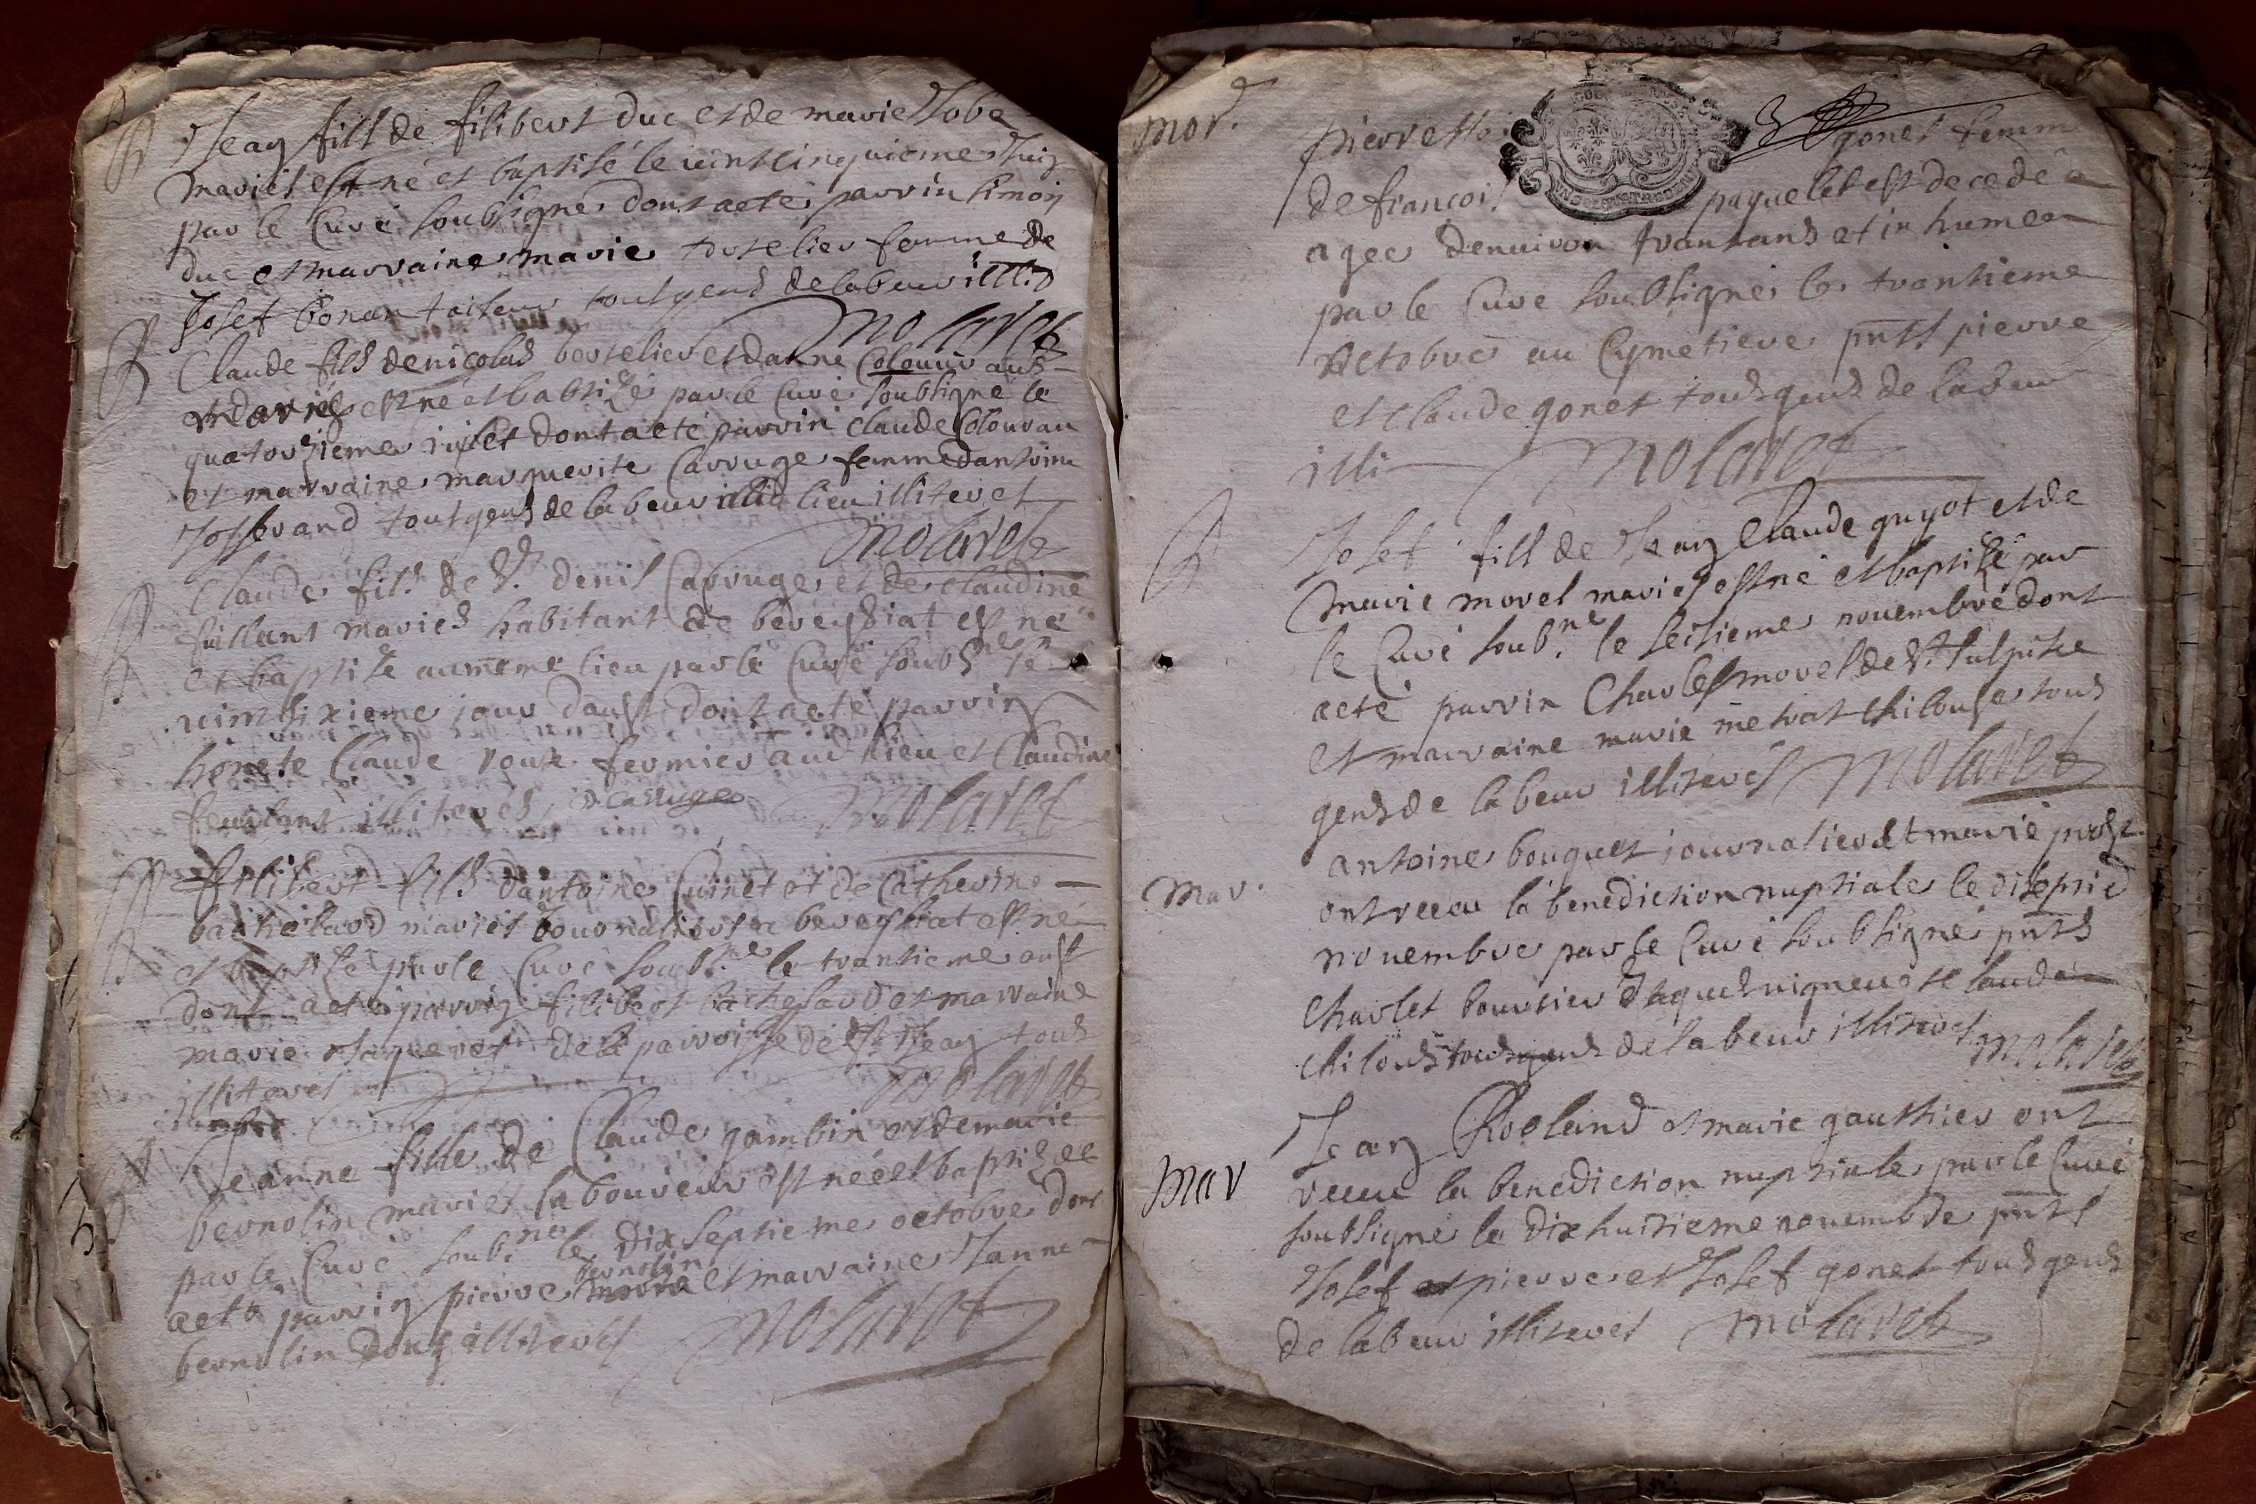 B
Jean fill de filibert duc et de marie Jobe
mariés est né et baptisé le vintcinquieme Juin
par le Curé soubsigné dont acte parrin simon
duc et marraine marie bertelier femme de
Josef bonan tailleur tout gens de labeur illi
molaret
B
Claude fils de nicolas bertelier et danne Colouvr
mariés est né et babtizé par le Curé soubsigné le
quatorzieme juilet dont acte parrin Claude Colouvrau
et marraine marguerite Carruge femme dantoine
Josserand tout gens de labeur illiteret
molaret
B
Claude fils de Sr. denis Carruge et de Claudine
fuillant mariés habitant de bereyziat est né
et baptizé au meme lieu par le Curé soubsné le
vintsixieme jour daust dont acte parrin
honete Claude fermier aud lieu et Claudine
feuilant illiterés D Carruge molaret
B
filibert fils dantoine Cuinet et de Catherine
bachelard mariés a bereyziat est né
et baptizé par le Curé soubsne le trantieme aust
dont acte parrin filibert bachelard et marraine
marie de la parroisse de St Jean tous
illiteres molaret
B
Jeanne fille de Claude gambin et de marie
bernolin mariés laboureur est née et baptizée
par le Curé soub.né le dix septieme octobre dont
bernolin
acte parrin pierre et marraine Janne
bernolin illiterés molaret
mor.
pierrette gonet femm
de françois paquelet est decedée
agee denuiron trantans et inhumee
par le Curé soubsigné le trantieme
octobre au Cymetiere pnts pierre
et Claude gonet tous gens de labeur
illi molaret
B
Josef fill de Jean Claude guyot et de
marie morel mariés est né et baptizé par
le Curé soub.né le seisieme nouembre dont
acte parrin Charles morel de St. Sulpise
et marraine marie metrat Chilouse tous
gens de labeur illiterés molaret
mar.
antoine bouquet journalier et marie
ont receu la benediction nuptiale le
nouembre par le Curé soubsigné pnts
Charles boursier Jaques
tous gens de labeur illiteres molaret
mar
Jean Rooland et marie gauthier ont
receu la benediction nuptiale par le Curé
soubsigné le dix huitieme nouembre pnts
Josef et pierre et Josef gonet tous gens
de labeur illiteret molaret